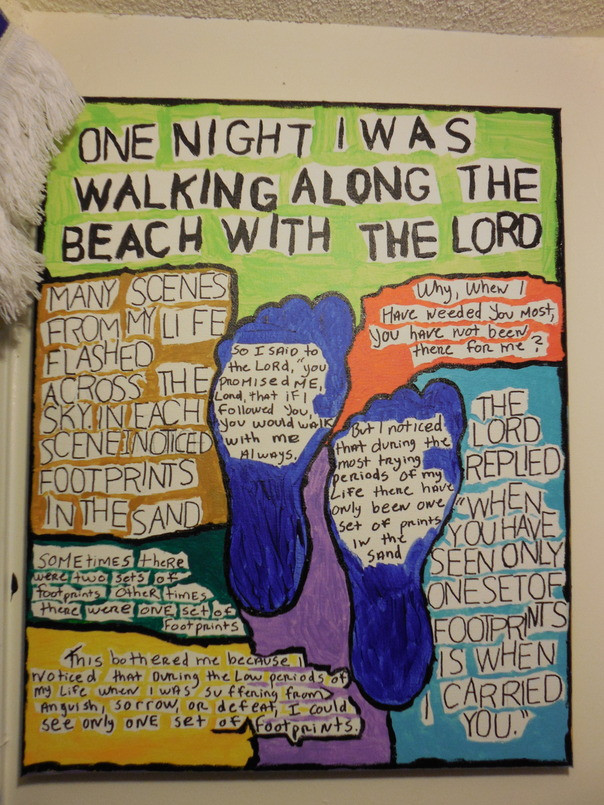 ONE NIGHT I WAS
WALKING ALONG THE
BEACH WITH THE LORD
MANY SCENES
FROM MY LIFE
FLASHED
ACROSS THE
SKY. IN EACH
SCENE I NOTICED
FOOTPRINTS
IN THE SAND
SOMEtimes there
were two sets of
footprints other times
there were ONE set of
footprints
This bothered me because I
Noticed that During the Low periods of
my Life when I was suffering from
Anguish, sorrow, or defeat, I could
see only ONE set of footprints.
So I SAID to
the LORD, "you
PROMISED ME,
Lord, that if I
followed you,
you would WALK
with me
Always.
But I noticed
that during the
most trying
periods of my
Life there have
only been one
set of prints
in the
SAND
Why, when I
Have needed you most,
you have not been
there for me?
THE
LORD
REPLIED
"WHEN
YOU HAVE
SEEN ONLY
ONE SET OF
FOOTPRINTS
IS WHEN
I CARRIED
YOU."